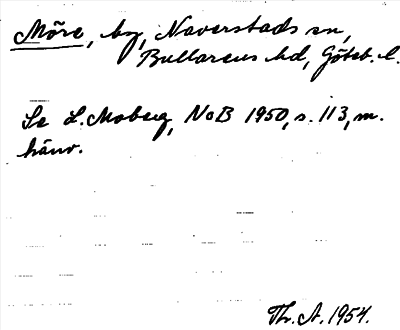 Möre, by, Naverstads sn,
Bullarens hd, Göteb. l.
Se L. Moberg, NoB 1950, s. 113, m.
hänv.
Th. A. 1954.